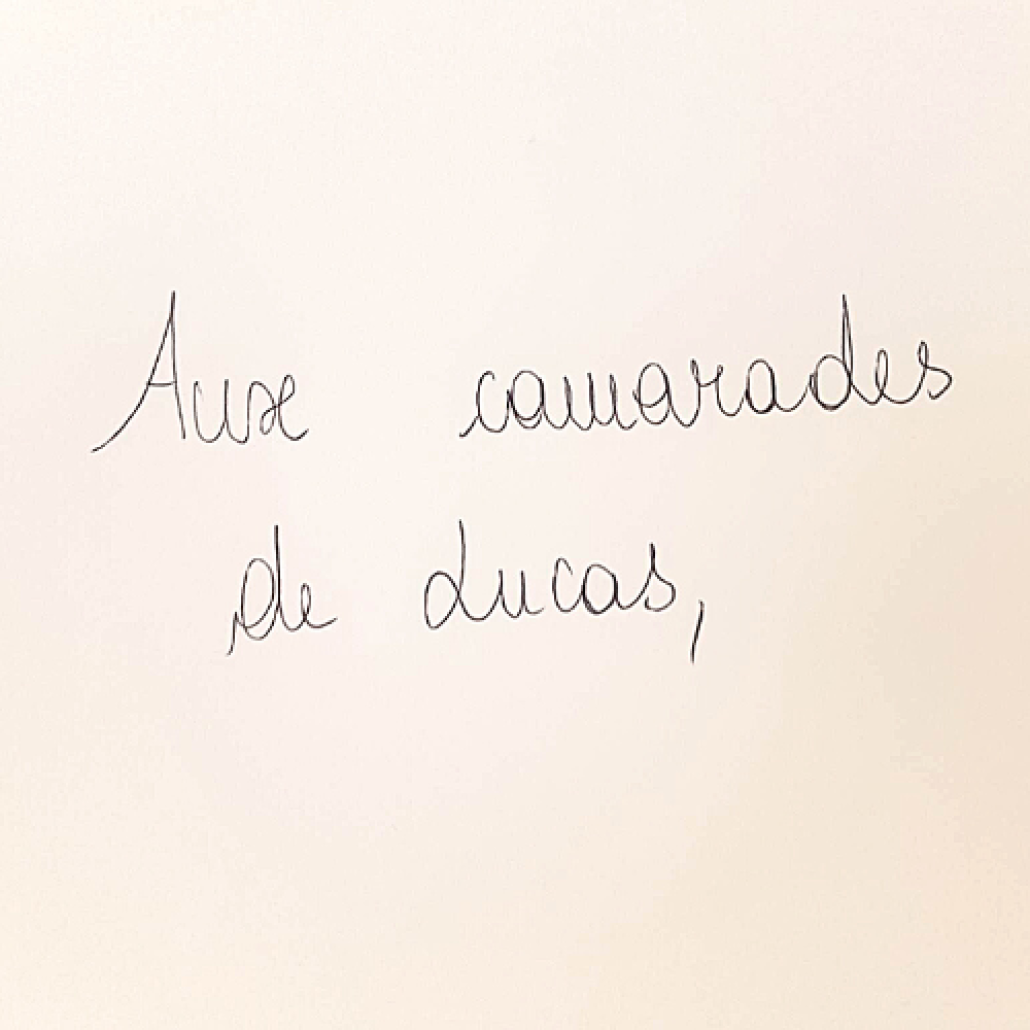 Aux camarades
de Lucas,